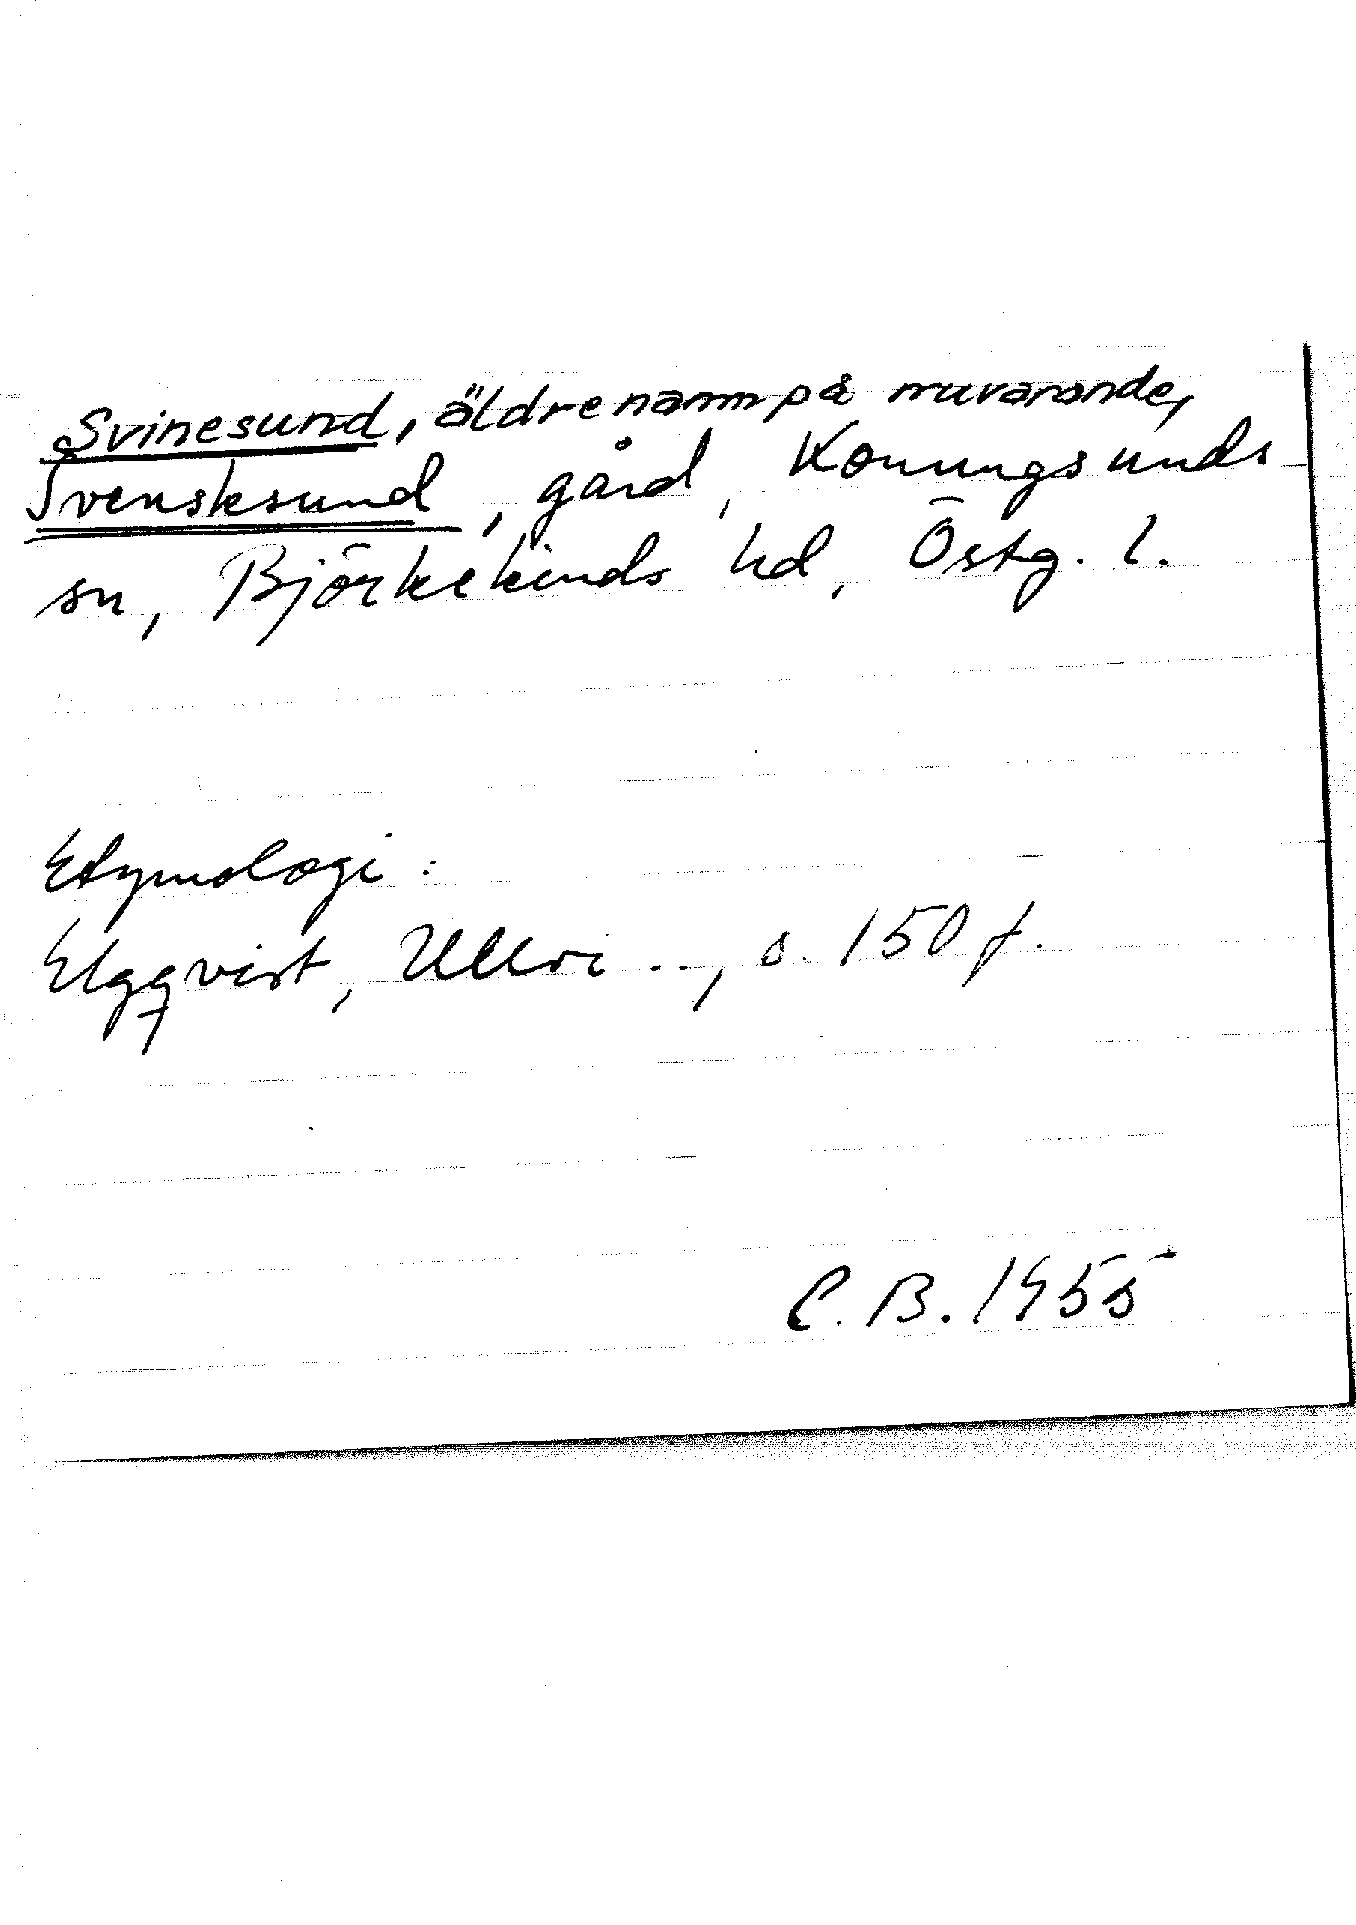 Svinesund, äldre namn på nuvarande,
Svensksund, gård, Konungsunds
sn, Björkekinds hd, Östg. l.
Etymologi:
Elgqvist, Ullvi .., s. 150 f.
C. B. 1955